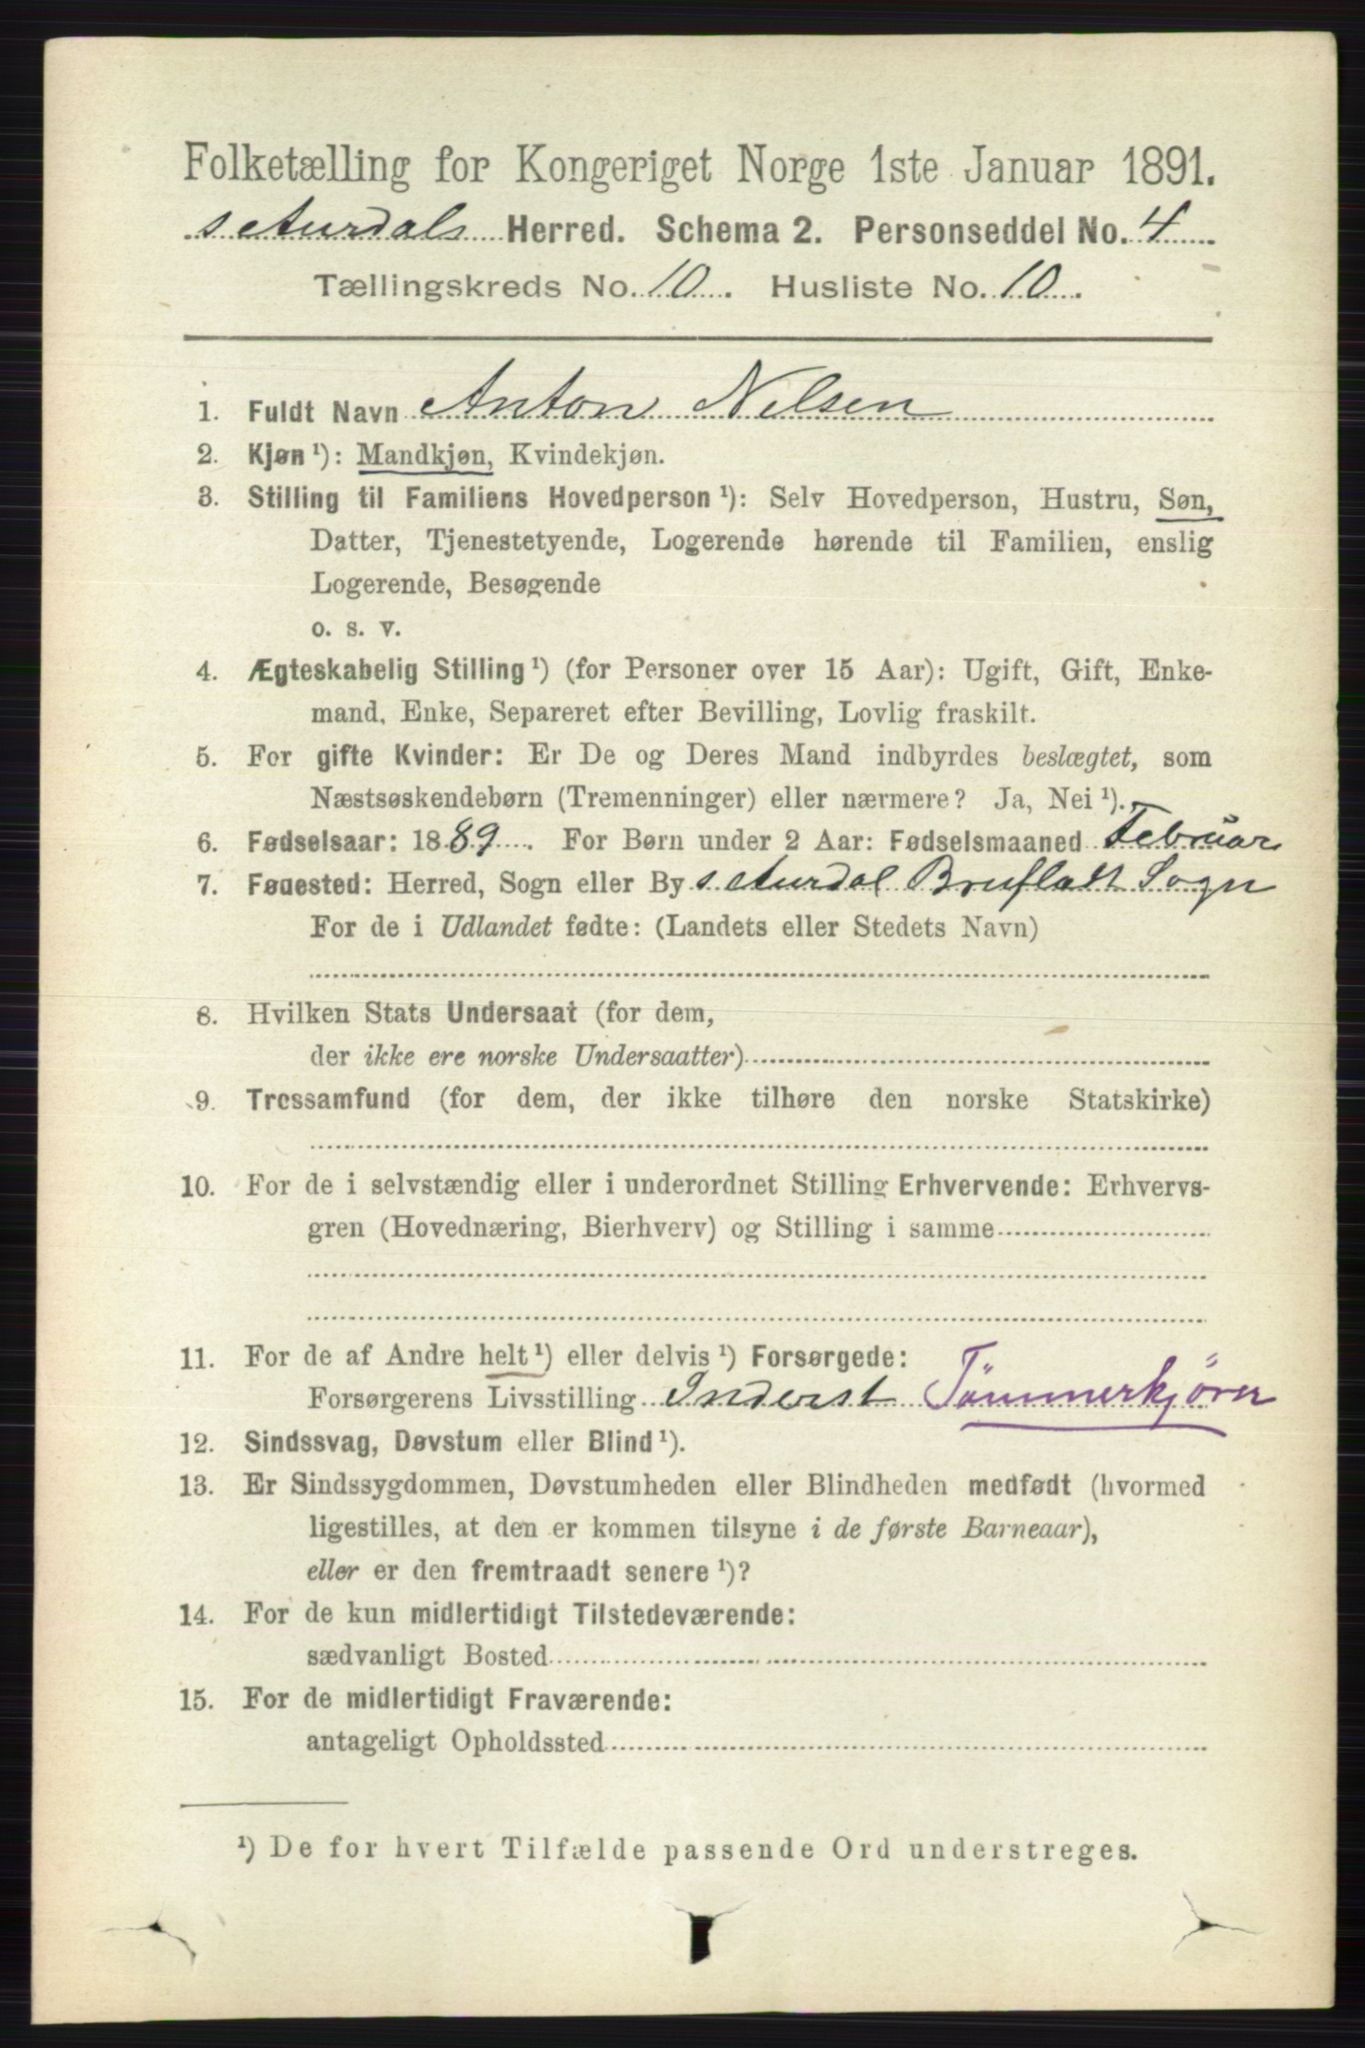 Folketælling for Kongeriget Norge 1ste Januar 1891.
s Aurdals Herred. Schema 2. Personseddel No. 4
Tællingskreds No. 10. Husliste No. 10.
1. Fuldt Navn Anton Nelsen
2. Kjøn ¹): Mandkjøn, Kvindekjøn.
3. Stilling til Familiens Hovedperson ¹): Selv Hovedperson, Hustru, Søn,
Datter, Tjenestetyende, Logerende hørende til Familien, enslig
Logerende, Besøgende
o. s. v.
4. Ægteskabelig Stilling ¹) (for Personer over 15 Aar): Ugift, Gift, Enke-
mand, Enke, Separeret efter Bevilling, Lovlig fraskilt.
5. For gifte Kvinder: Er De og Deres Mand indbyrdes beslægtet, som
Næstsøskendebørn (Tremenninger) eller nærmere? Ja, Nei ¹).
6. Fødselsaar: 1889. For Børn under 2 Aar: Fødselsmaaned Februar
7. Fødested: Herred, Sogn eller By s Aurdal Bruflatt Sogn
For de i Udlandet fødte: (Landets eller Stedets Navn)
8. Hvilken Stats Undersaat (for dem,
der ikke ere norske Undersaatter)
9. Trossamfund (for dem, der ikke tilhøre den norske Statskirke)
10. For de i selvstændig eller i underordnet Stilling Erhvervende: Erhvervs-
gren (Hovednæring, Bierhverv) og Stilling i samme
11. For de af Andre helt ¹) eller delvis ¹) Forsørgede:
Forsørgerens Livsstilling Inderst Tömmerkjörer
12. Sindssvag, Døvstum eller Blind ¹).
13. Er Sindssygdommen, Døvstumheden eller Blindheden medfødt (hvormed
ligestilles, at den er kommen tilsyne i de første Barneaar),
eller er den fremtraadt senere ¹)?
14. For de kun midlertidigt Tilstedeværende:
sædvanligt Bosted
15. For de midlertidigt Fraværende:
antageligt Opholdssted
¹) De for hvert Tilfælde passende Ord understreges.